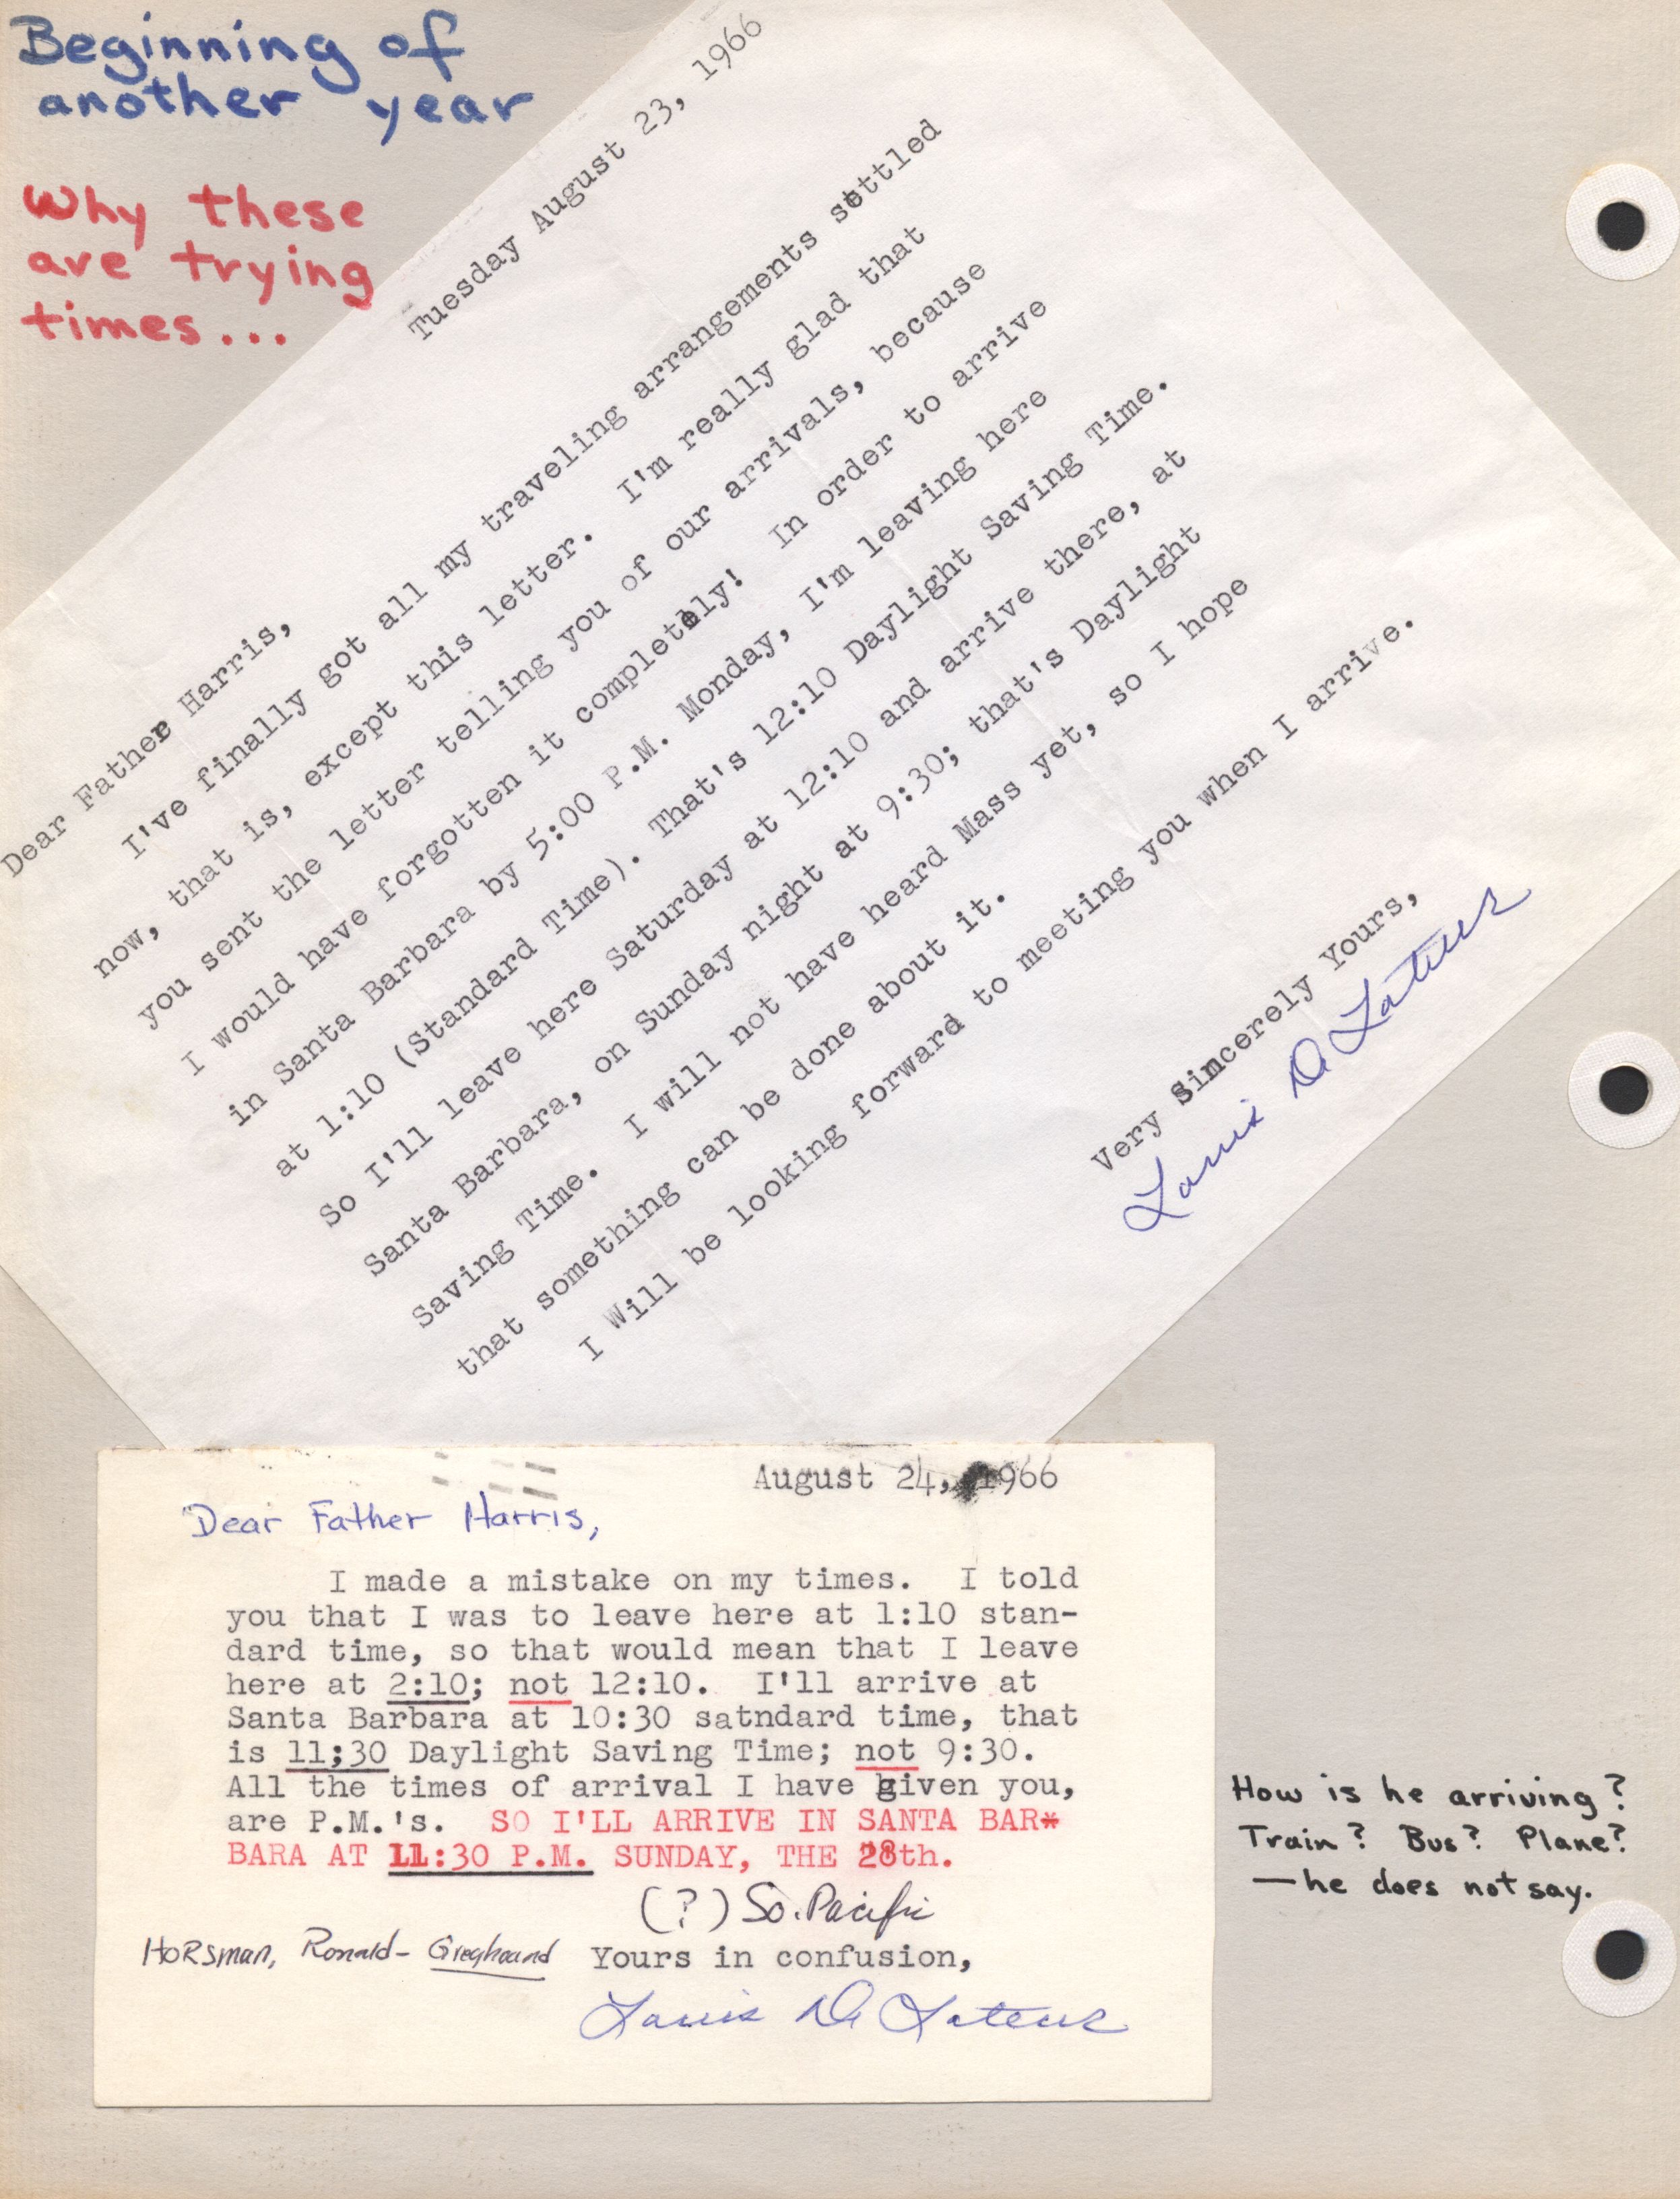 Beginning of
another year
Why these
are trying
times...
Tuesday August 23, 1966
Dear Father Harris,
I've finally got all my traveling arrangements settled
now, that is, except this letter. I'm really glad that
you sent the letter telling you of our arrivals, because
I would have forgotten it completely! In order to arrive
in Santa Barbara by 5:00 P.M. Monday, I'm leaving here
at 1:10 (Standard Time). That's 12:10 Daylight Saving Time.
So I'll leave here Saturday at 12:10 and arrive there, at
Santa Barbara, on Sunday night at 9:30; that's Daylight
Saving Time. I will not have heard Mass yet, so I hope
that something can be done about it.
I Will be looking forward to meeting you when I arrive.
Very Sincerely Yours,
Louis De Lateur
August 24, 1966
Dear Father Harris,
I made a mistake on my times. I told
you that I was to leave here at 1:10 stan-
dard time, so that would mean that I leave
here at 2:10; not 12:10. I'll arrive at
Santa Barbara at 10:30 satndard time, that
is 11;30 Daylight Saving Time; not 9:30.
All the times of arrival I have given you,
are P.M.'s. SO I'LL ARRIVE IN SANTA BAR*
BARA AT 11:30 P.M. SUNDAY, THE 28th.
(?) So. Pacific
HORSman, Ronald- Greyhound
Yours in confusion,
Louis De Lateur
How is he arriving?
Train? Bus? Plane?
—he does not say.